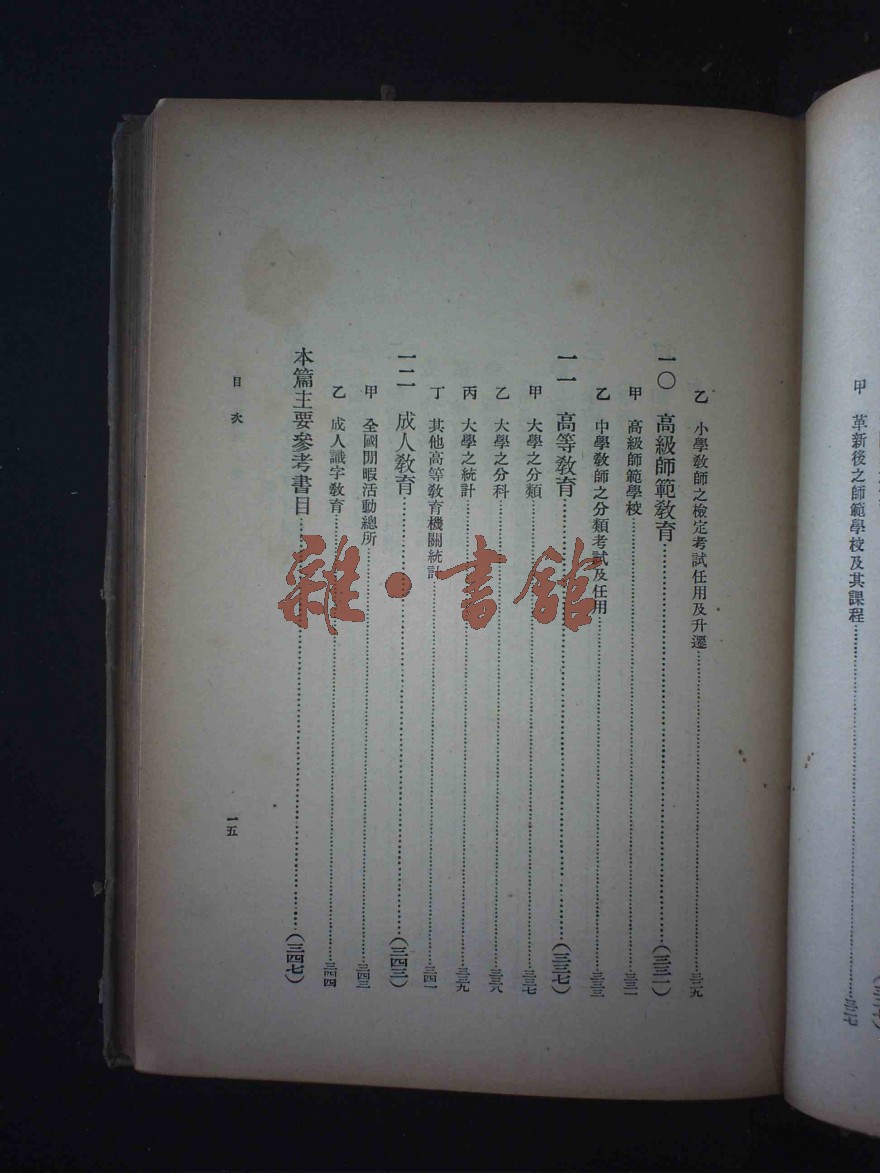 甲 革新後之師範學校及其課程……三二七
乙 小學教師之檢定考試任用及升遷……三二九
一〇 高級師範教育……(三三一)
甲 高級師範學校……三三一
乙 中學教師之分類考試及任用……三三三
一一 高等教育……(三三七)
甲 大學之分類……三三七
乙 大學之分科……三三八
丙 大學之統計……三三九
丁 其他高等教育機關統計……三四一
一二 成人教育……(三四三)
甲 全國閒暇活動總所……三四三
乙 成人識字教育……三四四
本篇主要參考書目……(三四七)
目次
一五
雜·書館